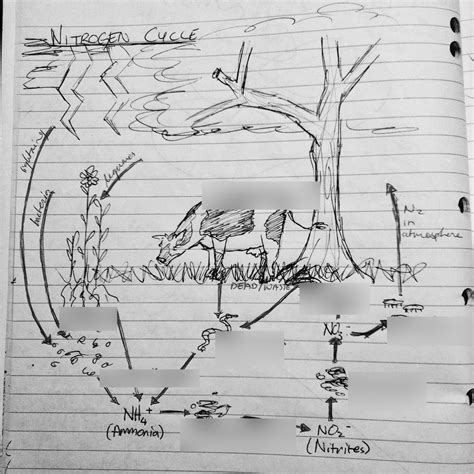 NITROGEN CYCLE
lightning
bacteria
legumes
N₂
in
atmosphere
DEAD/WASTE
NO₃⁻
NH₄⁺
(Ammonia)
NO₂⁻
(Nitrites)